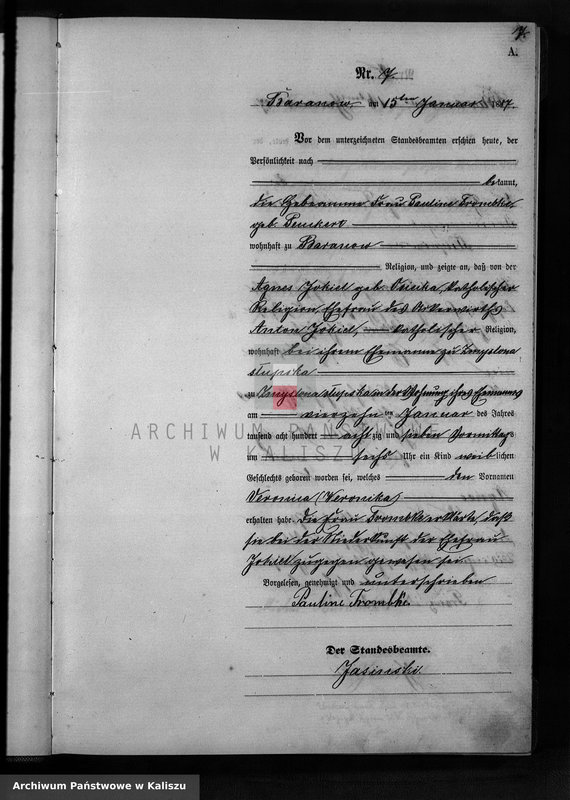 7.
A.
Nr. 7
Baranow, am 15ten Januar 1887.
Vor dem unterzeichneten Standesbeamten erschien heute, der
Persönlichkeit nach
bekannt,
die Hebeamme Frau Pauline Trombke,
geb. Penkert
wohnhaft zu Baranow
Religion, und zeigte an, daß von der
Agnes Jokiel geb. Osicka, katholischer
Religion, Ehefrau des Ackerwirths
Anton Jokiel, katholischer Religion,
wohnhaft bei ihrem Ehemanne zu Zmyslona
slupska
zu Zmyslona slupska in der Wohnung ihres Ehemannes
am vierzehn ten Januar des Jahres
tausend acht hundert acht zig und sieben Vormittags
um sechs Uhr ein Kind weiblichen
Geschlechts geboren worden sei, welches den Vornamen
Veronia (Weronika)
erhalten habe. Die Frau Trombke erklärte, daß
sie bei der Niederkunft der Ehefrau
Jokiel zugegen gewesen sei.
Vorgelesen, genehmigt und unterschrieben
Pauline Trombke.
Der Standesbeamte.
Jasinski.
ARCHIWUM PAŃSTWOWE
W KALISZU
Archiwum Państwowe w Kaliszu